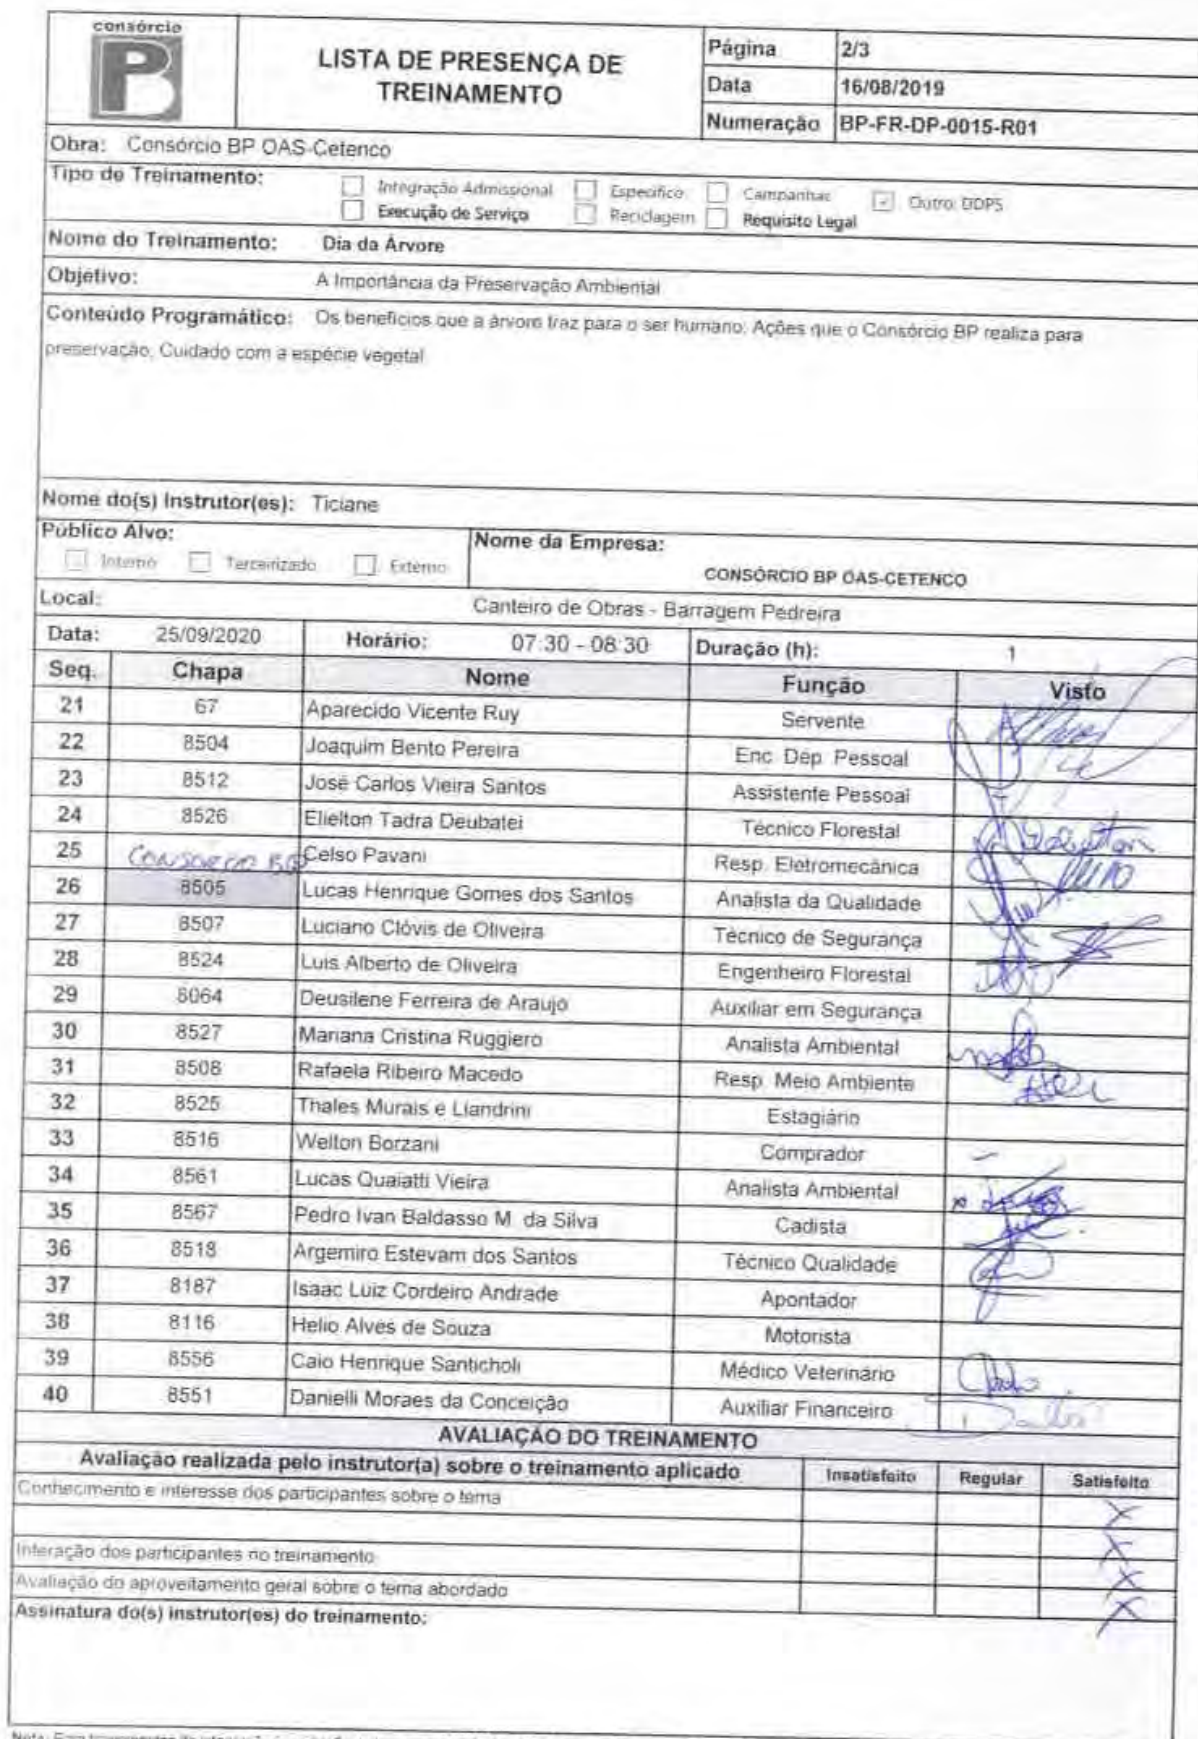 consórcio
B
LISTA DE PRESENÇA DE
TREINAMENTO
Página 2/3
Data 16/08/2019
Numeração BP-FR-DP-0015-R01
Obra: Consórcio BP OAS-Cetenco
Tipo de Treinamento:
Integração Admissional Especifico Campanhas Outro: DDPS
Execução de Serviço Reciclagem Requisito Legal
Nome do Treinamento: Dia da Árvore
Objetivo: A Importância da Preservação Ambiental
Conteúdo Programático: Os beneficios que a árvore traz para o ser humano; Ações que o Consórcio BP realiza para
preservação; Cuidado com a espécie vegetal
Nome do(s) Instrutor(es): Ticiane
Público Alvo: Nome da Empresa:
Interno Terceirizado Externo CONSÓRCIO BP OAS-CETENCO
Local: Canteiro de Obras - Barragem Pedreira
Data: 25/09/2020 Horário: 07:30 - 08:30 Duração (h): 1
Seq. Chapa Nome Função Visto
21 67 Aparecido Vicente Ruy Servente
22 8504 Joaquim Bento Pereira Enc. Dep. Pessoal
23 8512 José Carlos Vieira Santos Assistente Pessoal
24 8526 Elielton Tadra Deubatei Técnico Florestal
25 Consórcio Celso Pavani Resp. Eletromecânica
26 8505 Lucas Henrique Gomes dos Santos Analista da Qualidade
27 8507 Luciano Clóvis de Oliveira Técnico de Segurança
28 8524 Luis Alberto de Oliveira Engenheiro Florestal
29 8064 Deusilene Ferreira de Araujo Auxiliar em Segurança
30 8527 Mariana Cristina Ruggiero Analista Ambiental
31 8508 Rafaela Ribeiro Macedo Resp. Meio Ambiente
32 8525 Thales Murais e Liandrini Estagiário
33 8516 Welton Borzani Comprador
34 8561 Lucas Quaiatti Vieira Analista Ambiental
35 8567 Pedro Ivan Baldasso M. da Silva Cadista
36 8518 Argemiro Estevam dos Santos Técnico Qualidade
37 8187 Isaac Luiz Cordeiro Andrade Apontador
38 8116 Helio Alves de Souza Motorista
39 8556 Caio Henrique Santicholi Médico Veterinário
40 8551 Danielli Moraes da Conceição Auxiliar Financeiro
AVALIAÇÃO DO TREINAMENTO
Avaliação realizada pelo instrutor(a) sobre o treinamento aplicado Insatisfeito Regular Satisfeito
Conhecimento e interesse dos participantes sobre o tema X
X
Interação dos participantes no treinamento X
Avaliação do aproveitamento geral sobre o tema abordado X
Assinatura do(s) instrutor(es) do treinamento: